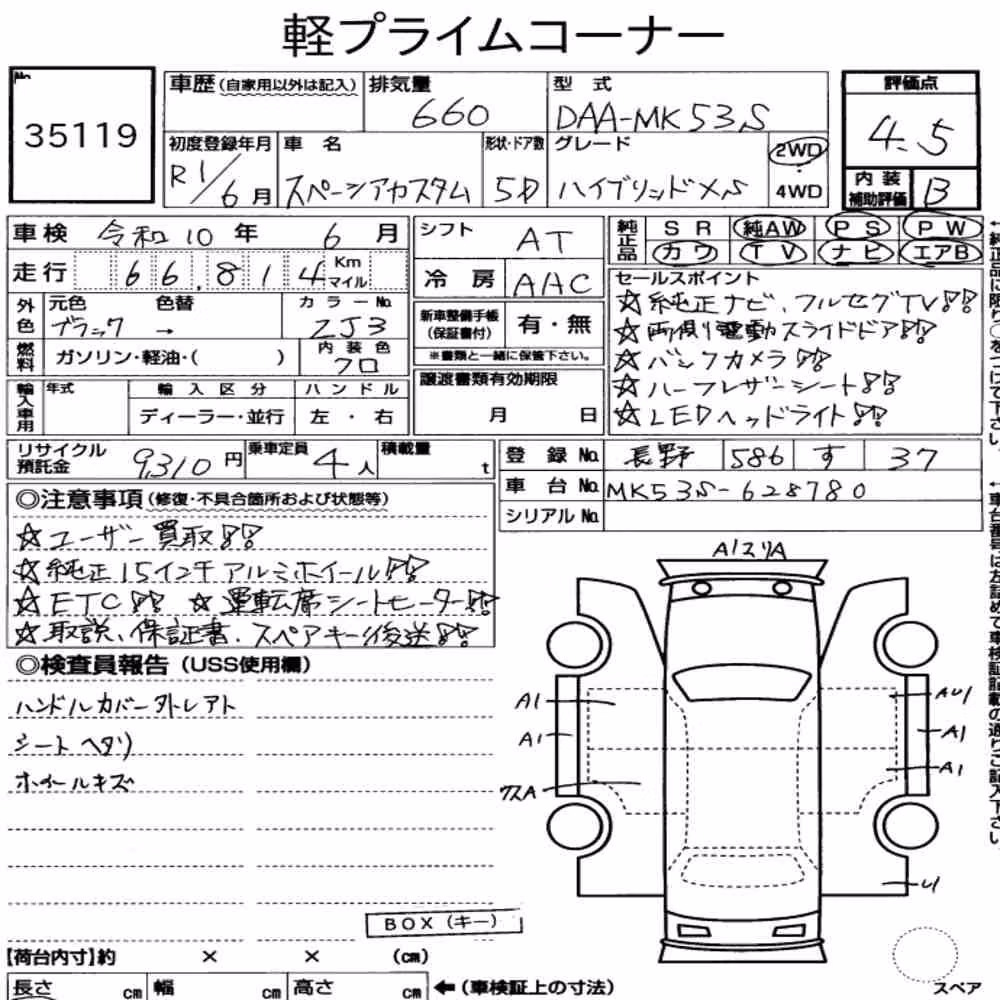 軽プライムコーナー
No.
35119
車歴(自家用以外は記入) 排気量 660
型式 DAA-MK53S
評価点 4.5
初度登録年月 R1/6月
車名 スペーシアカスタム
形状・ドア数 5D
グレード ハイブリッドXS
2WD
4WD
内装補助評価 B
車検 令和10年 6月
走行 66,814 Km マイル
シフト AT
冷房 AAC
純正品 SR 純AW PS PW
カワ TV ナビ エアB
外色 元色 ブラック 色替 → カラーNo. ZJ3
燃料 ガソリン・軽油・( )
内装色 クロ
新車整備手帳(保証書付) 有・無
※書類と一緒に保管下さい。
譲渡書類有効期限
月 日
セールスポイント
☆純正ナビ、フルセグTV!!
☆両側電動スライドドア!!
☆バックカメラ!!
☆ハーフレザーシート!!
☆LEDヘッドライト!!
輸入車用 年式 輸入区分 ハンドル
ディーラー・並行 左・右
リサイクル預託金 9,310円
乗車定員 4人
積載量 t
登録No. 長野 586 す 37
車台No. MK53S-628780
シリアルNo.
◎注意事項(修復・不具合箇所および状態等)
☆ユーザー買取!!
☆純正15インチアルミホイール!!
☆ETC!! ☆運転席シートヒーター!!
☆取説、保証書、スペアキー後送!!
◎検査員報告(USS使用欄)
ハンドルカバー外レアト
シートヘタリ
ホイールキズ
A1スリA
A1
A1
ワスA
AU1
A1
A1
U
BOX(キー)
【荷台内寸】約 × × (cm)
長さ cm 幅 cm 高さ cm ←(車検証上の寸法)
スペア